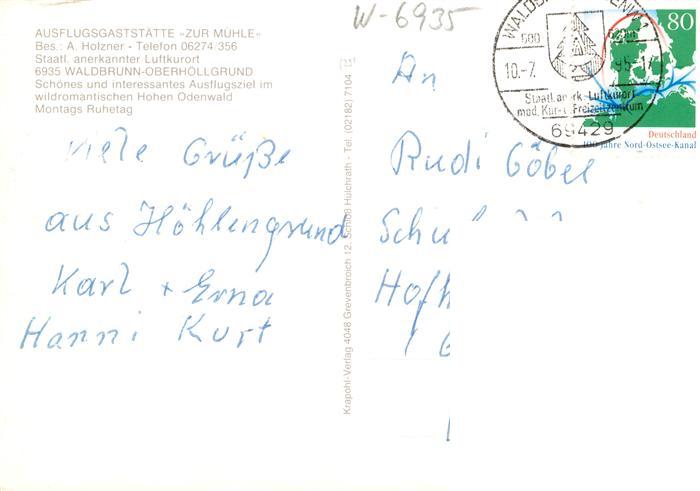 W-6935
AUSFLUGSGASTSTÄTTE »ZUR MÜHLE«
Bes.: A. Holzner - Telefon 06274/356
Staatl. anerkannter Luftkurort
6935 WALDBRUNN-OBERHÖLLGRUND
Schönes und interessantes Ausflugsziel im
wildromantischen Hohen Odenwald
Montags Ruhetag
Viele Grüße
aus Höhlengrund
Karl + Erna
Hanni Kurt
Krapohl-Verlag 4048 Grevenbroich 12, Schloß Hülchrath - Tel. (02182) 7104
An
Rudi Göbel
80
Deutschland
100 Jahre Nord-Ostsee-Kanal
10.-7.
Staatl. anerk. Luftkurort
mod. Kur- u. Freizeitzentrum
69429